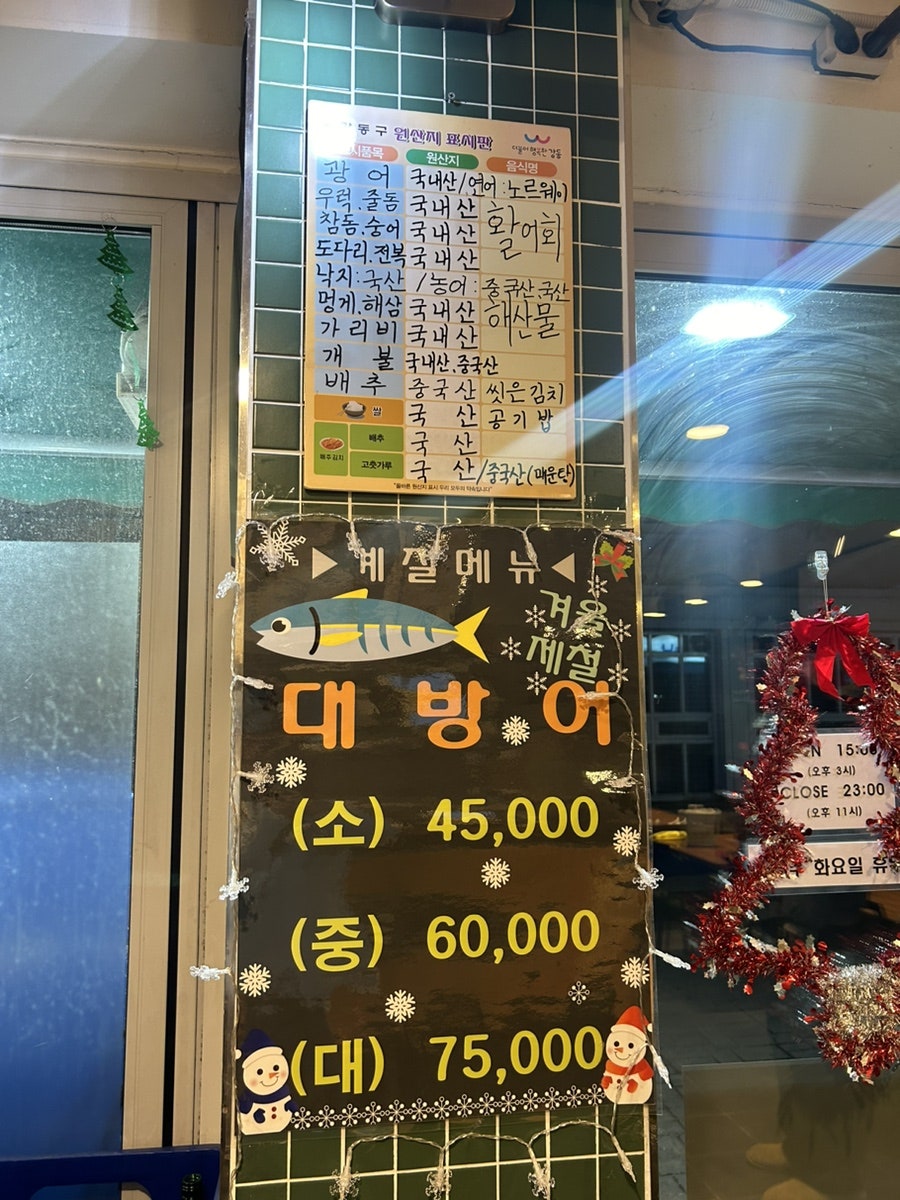 동구 원산지 표시판
더불어 행복한 강동
품목 원산지 음식명
광어 국내산/연어:노르웨이
우럭.줄돔 국내산
참돔.숭어 국내산 활어회
도다리.전복 국내산
낙지:국산 /농어: 중국산 국산
멍게.해삼 국내산 해산물
가리비 국내산
개불 국내산.중국산
배추 중국산 씻은김치
쌀 국산 공기밥
배추김치 배추 국산
고춧가루 국산/중국산(매운탕)
"올바른 원산지 표시 우리 모두의 약속입니다"
▶계절메뉴◀
겨울
제철
대방어
(소) 45,000
(중) 60,000
(대) 75,000
15:00
(오후 3시)
CLOSE 23:00
(오후 11시)
화요일